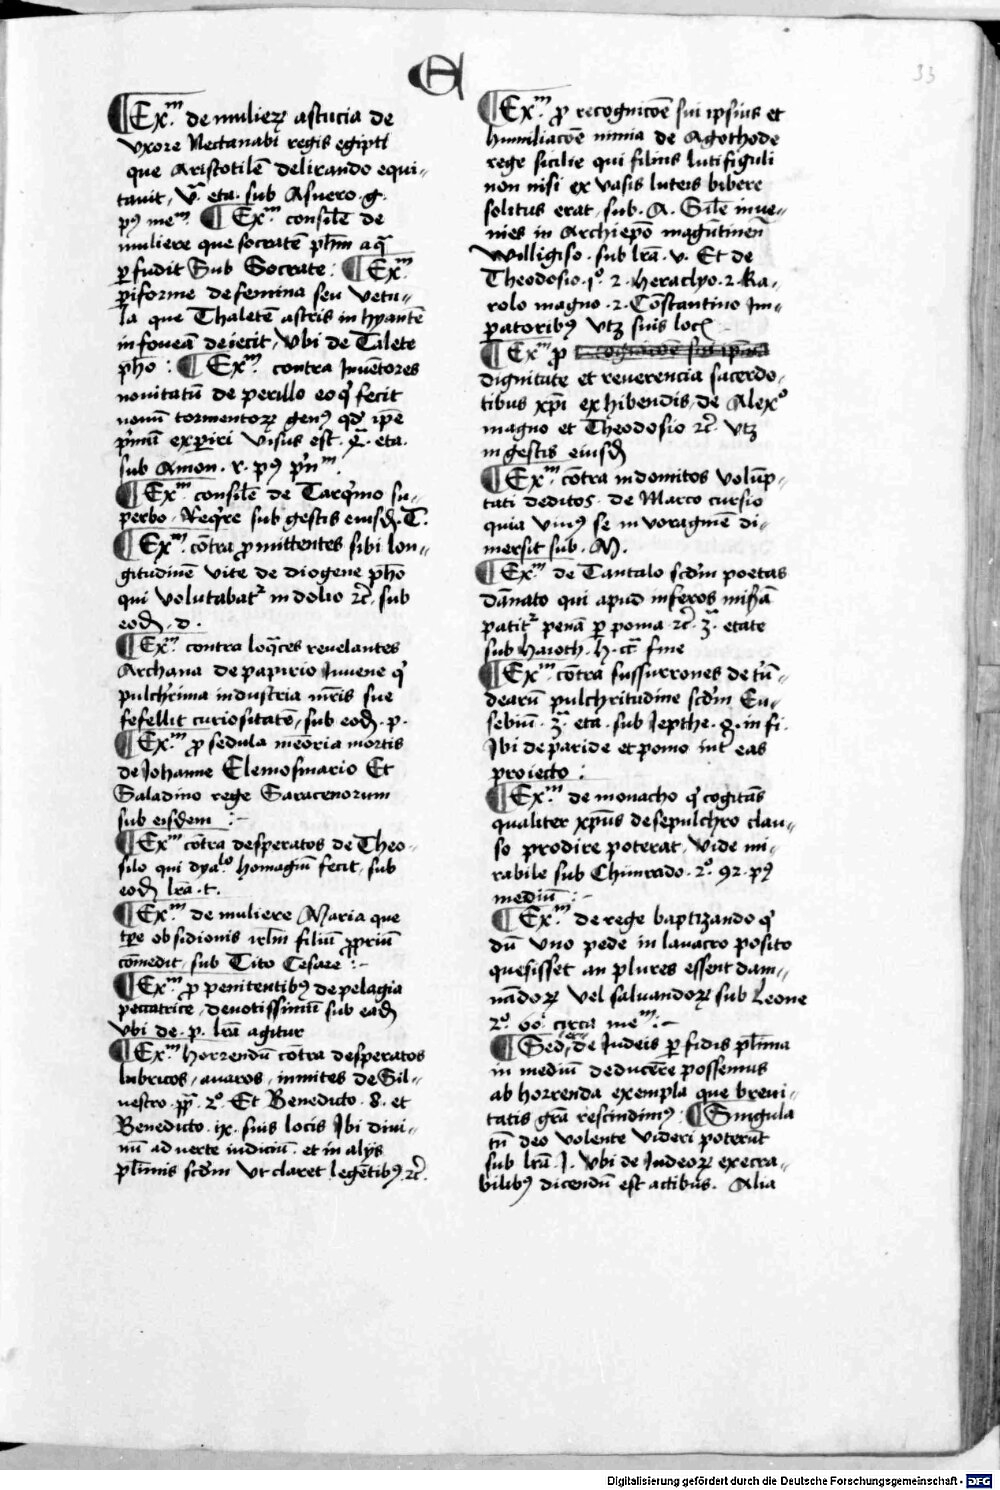 E
33
¶ Exm̄ de mulierꝝ astucia de
vxore Nectanabi regis egipti
que Aristotilē delirando equi⸗
tauit, v.ᵃ eta. sub Asuero .g.
pꝰ meᵐ. ¶ Exm̄ consilē de
muliere que socratē ph̄m aq̄
ꝑfudit Sub Socrate : ¶ Exm̄
ꝑiforme de femina seu vetu⸗
la que Thaletē astris in hyantē
in foueā deiecit, Vbi de Talete
ph̄o : ¶ Exm̄ contra Inuētores
nouitatū de perillo eo qͥ fecit
nouū tormentorꝝ genꝰ qd̄ ip̄e
pͥmū exꝑiri visus est. 4.ᵃ eta.
sub Amon . r. pꝰ pͥnᵐ.
¶ Exm̄ consilē de Tarqͥno su⸗
perbo, Reqͥre sub gestis eiusd̄. T.
¶ Exm̄ cōtra ꝓmittentes sibi lon⸗
gitudinē vite de diogene ph̄o
qui volutabatᷣ in dolio ⁊c̄. sub
eod̄ . d .
¶ Exm̄ contra loq̄ces reuelantes
Archana de papirio Iuuene qͥ
pulchͥrima industria mr̄is sue
fefellit curiositatē, sub eod̄ . p.
¶ Exm̄ ꝓ sedula memōria mortis
de Johanne Elemosinario Et
Saladino rege Saracenorum
sub eisdem :⁓
¶ Exm̄ cōtra desperatos de Theo⸗
filo qui dyalᵒ homagiū fecit, sub
eod̄ lr̄a . t.
¶ Exm̄ de muliere Maria que
tp̄e obsidionis irlm̄ filiū ꝓpriū
cōmedit, sub Tito Cesare :⁓
¶ Exm̄ ꝓ penitentibꝰ de pelagia
peccatrice, deuotissimū sub ead̄
vbi de .p. lr̄a agitur
¶ Exm̄ horrendū cōtra desperatos
lubricos, auaros, inmites de Sil⸗
uestro pp̄ . 2.ᵒ Et Benedicto . 8. et
Benedicto . ix. suis locis Ibi diui⸗
nū aduerte iudiciū . et in alijs
pl̄imis scd̄m vt claret legētibꝰ ⁊c̄.
¶ Exm̄ ꝓ recognicōe sui ipsius et
humiliacōe nimia de Agothode
rege sicilie qui filius lutifiguli
non nisi ex vasis luteis bibere
solitus erat, sub . A. Sil̄e inue⸗
nies in Archiepō magūtinēn
Willigiso . sub lr̄a . v. Et de
Theodosio .1.ᵒ 2. Heraclyo . 2. Ka⸗
rolo magno . 2. Cōstantino Im⸗
peratoribꝰ vtꝫ suis loc̄
¶ Exm̄ ꝓ
dignitate et reuerencia sacerdo⸗
tibus xp̄i exhibendis, de Alexᵒ
magno et Theodosio ⁊c̄. vtꝫ
in gestis eiusd̄
¶ Exm̄ cōtra indomitos volup̄⸗
tati deditos . de Marco cursio
quia viuꝰ se in voraginē di⸗
mersit sub . M.
¶ Exm̄ de Tantalo scd̄m poetas
dānato qui apud inferos mirā
patitᷣ penā ꝑ poma ⁊c̄. 3.ᵃ etate
sub haioth . h. cᵃ fine
¶ Exm̄ cōtra sussurrones de tͥū
dearū pulchritudine scd̄m Eu⸗
sebiū . 3.ᵃ eta. sub Iepthe . g. in fi.
Ibi de paride et pomo int̄ eas
proiecto :
¶ Exm̄ de monacho qͥ cogitās
qualiter xp̄us de sepulchro clau⸗
so prodire poterat, Vide mi⸗
rabile sub Chunrado . 2.ᵒ 92. pꝰ
mediū :⁓
¶ Exm̄ de rege baptizando qͥ
dū vno pede in lauacro posito
quesisset an plures essent dam⸗
nādorꝝ vel saluandorꝝ sub Leone
2.ᵒ 60. circa meᵐ :⁓
¶ Sed de Iudeis ꝑfidis pl̄ima
in mediū deducere possemus
ab horrenda exempla que breui⸗
tatis gr̄a rescindimꝰ : ¶ Singula
tn̄ deo volente videri poterūt
sub lr̄a . J. Vbi de Iudeorꝝ execra⸗
bilibꝰ dicendū est actibus. Alia
Digitalisierung gefördert durch die Deutsche Forschungsgemeinschaft - DFG